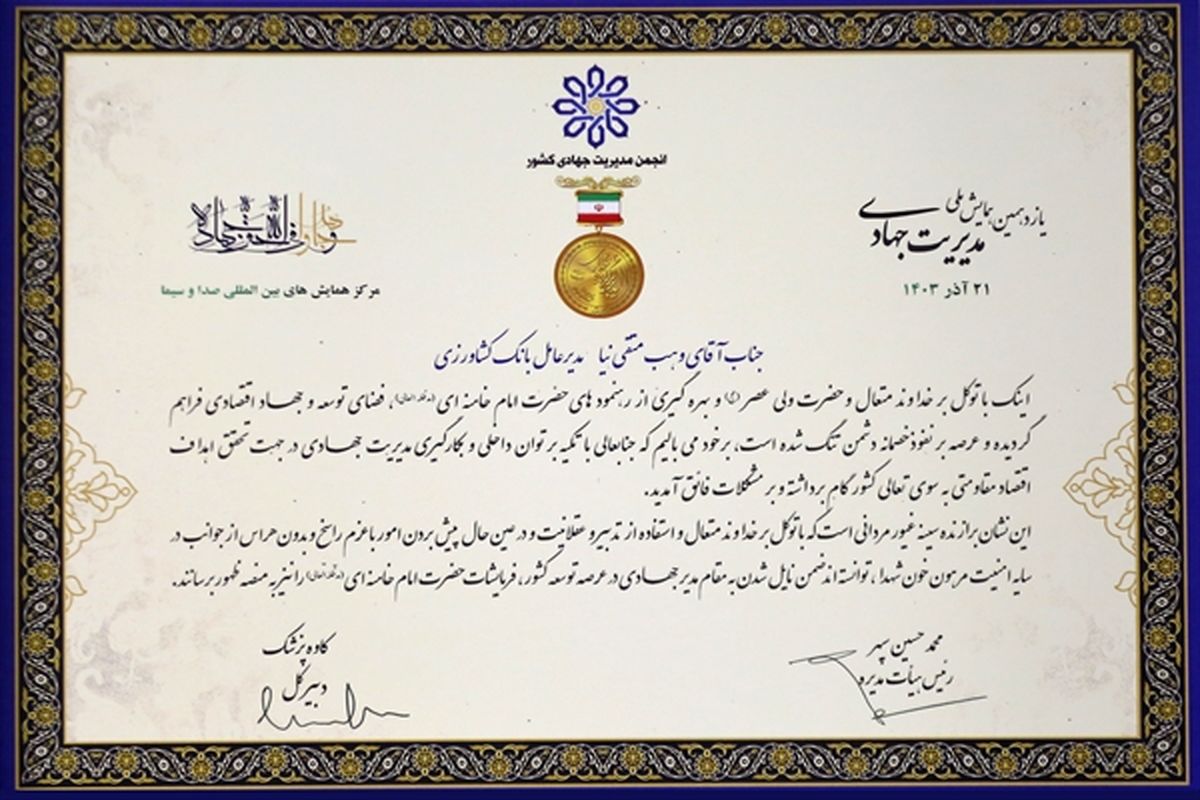 انجمن مدیریت جهادی کشور
یازدهمین همایش ملی
مدیریت جهادی
۲۱ آذر ۱۴۰۳
و جاهدوا فی الله حق جهاده
مرکز همایش های بین المللی صدا و سیما
جناب آقای وهب متقی نیا مدیرعامل بانک کشاورزی
اینک با توکل بر خداوند متعال و حضرت ولی عصر و بهره گیری از رهنمود های حضرت امام خامنه ای (مدظله العالی)، فضای توسعه و جهاد اقتصادی فراهم
گردیده و عرصه بر نفوذ خصمانه دشمن تنگ شده است، برخود می بالیم که جنابعالی با تکیه بر توان داخلی و بکارگیری مدیریت جهادی در جهت تحقق اهداف
اقتصاد مقاومتی به سوی تعالی کشور گام برداشته و بر مشکلات فائق آمدید.
این نشان برازنده سینه غیور مردانی است که با توکل بر خداوند متعال و استفاده از تدبیر و عقلانیت و در عین حال پیش بردن امور با عزم راسخ و بدون هراس از جوانب در
سایه امنیت مرهون خون شهدا، توانسته اند ضمن نایل شدن به مقام مدیر جهادی در عرصه توسعه کشور، فرمایشات حضرت امام خامنه ای (مدظله العالی) را نیز به منصه ظهور برسانند.
محمد حسین سپهر
رئیس هیأت مدیره
کاوه پزشک
دبیر کل